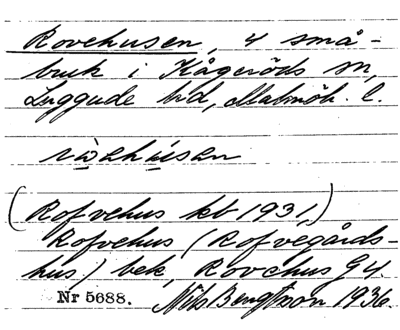 Rovehusen, 4 små-
bruk i Kågeröds sn,
Luggude hd, Malmöh. l.
ròvehúsen
(Rofvehus kb 1931,)
Rofvehus (Rofvegårds-
hus) bek, Rovehus G 4.
Nr 5688. Nils Bengtsson 1936.